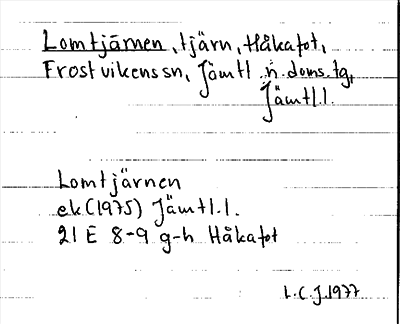 Lomtjärnen, tjärn, Håkafot,
Frostvikens sn, Jämtl. n. doms. tg,
Jämtl.l.
Lomtjärnen
ek (1975) Jämtl.l.
21 E 8-9 g-h Håkafot
L.C.J. 1977